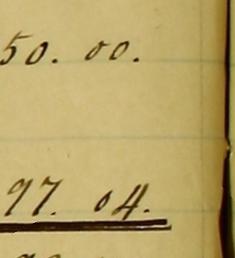 50. 00.
97. 04.